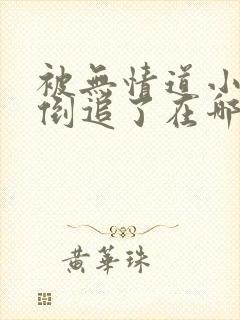 被無情道小
倒追了在哪
黃華珠